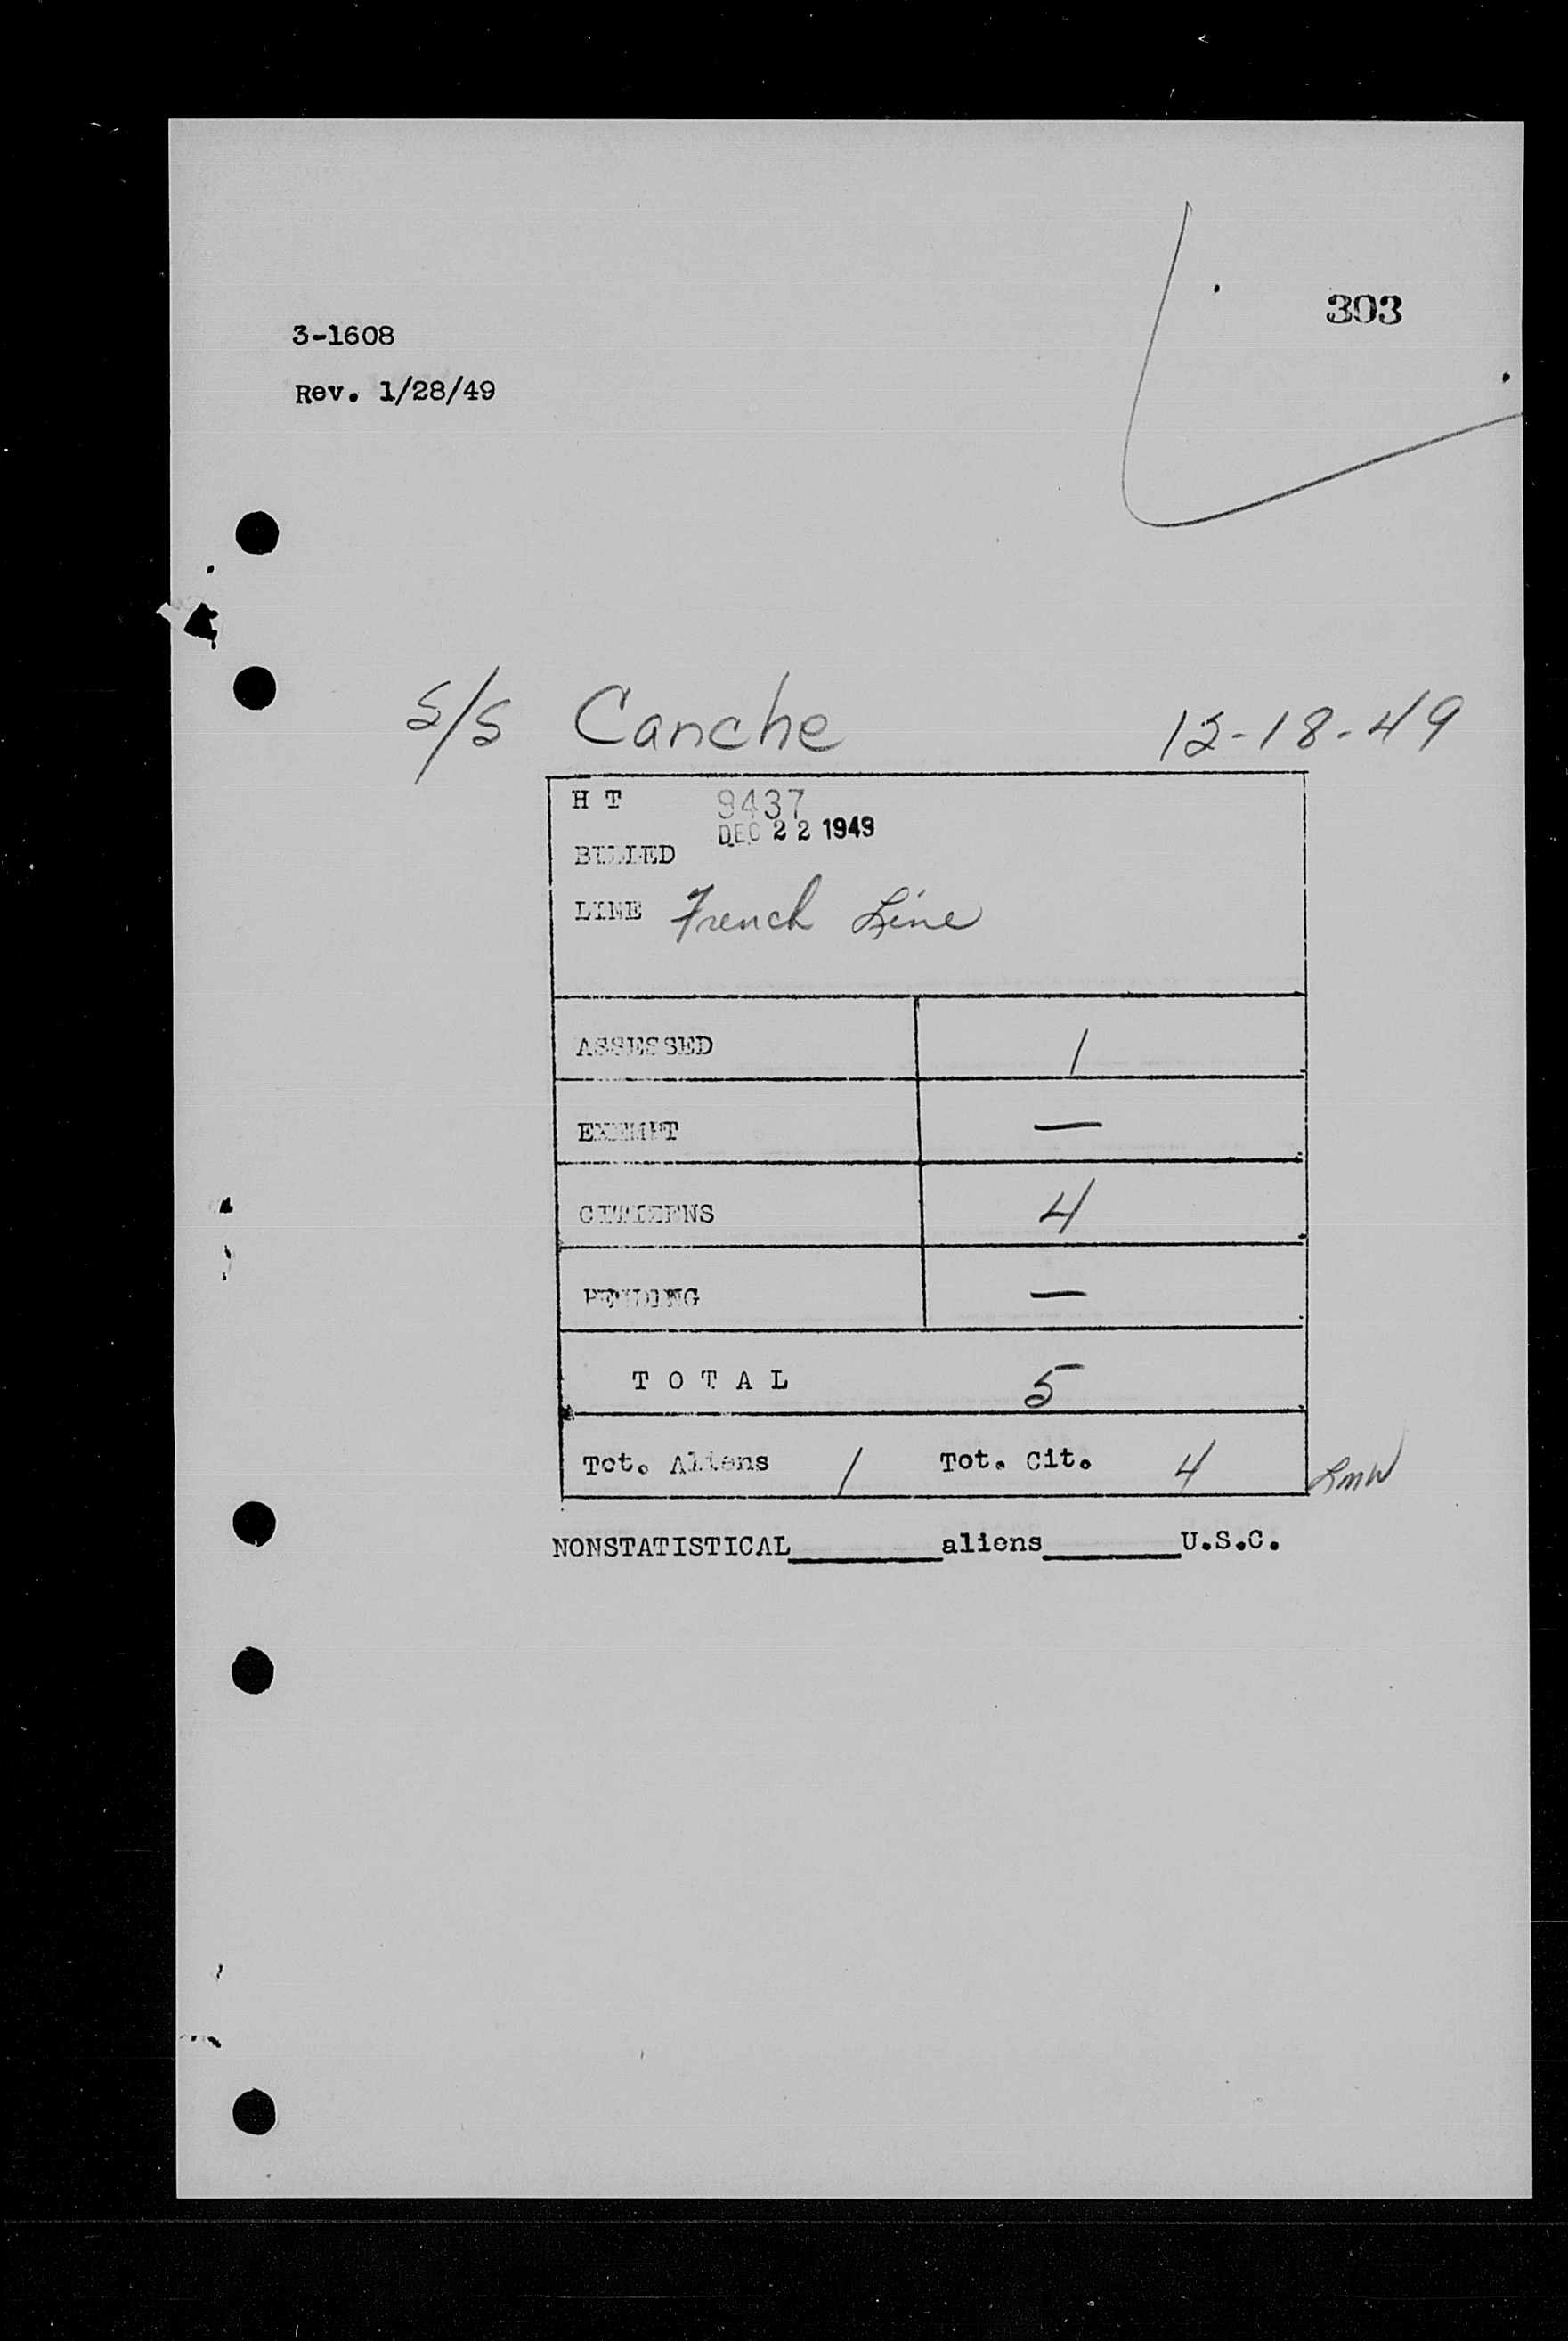 303
3-1608
Rev. 1/28/49
S/S Canche 12-18-49
H T 9437
DEC 22 1949
BILLED
LINE French Line
ASSESSED 1
EXEMPT —
CITIZENS 4
PENDING —
T O T A L 5
Tot. Aliens 1 Tot. Cit. 4 LMW
NONSTATISTICAL________aliens_______U.S.C.